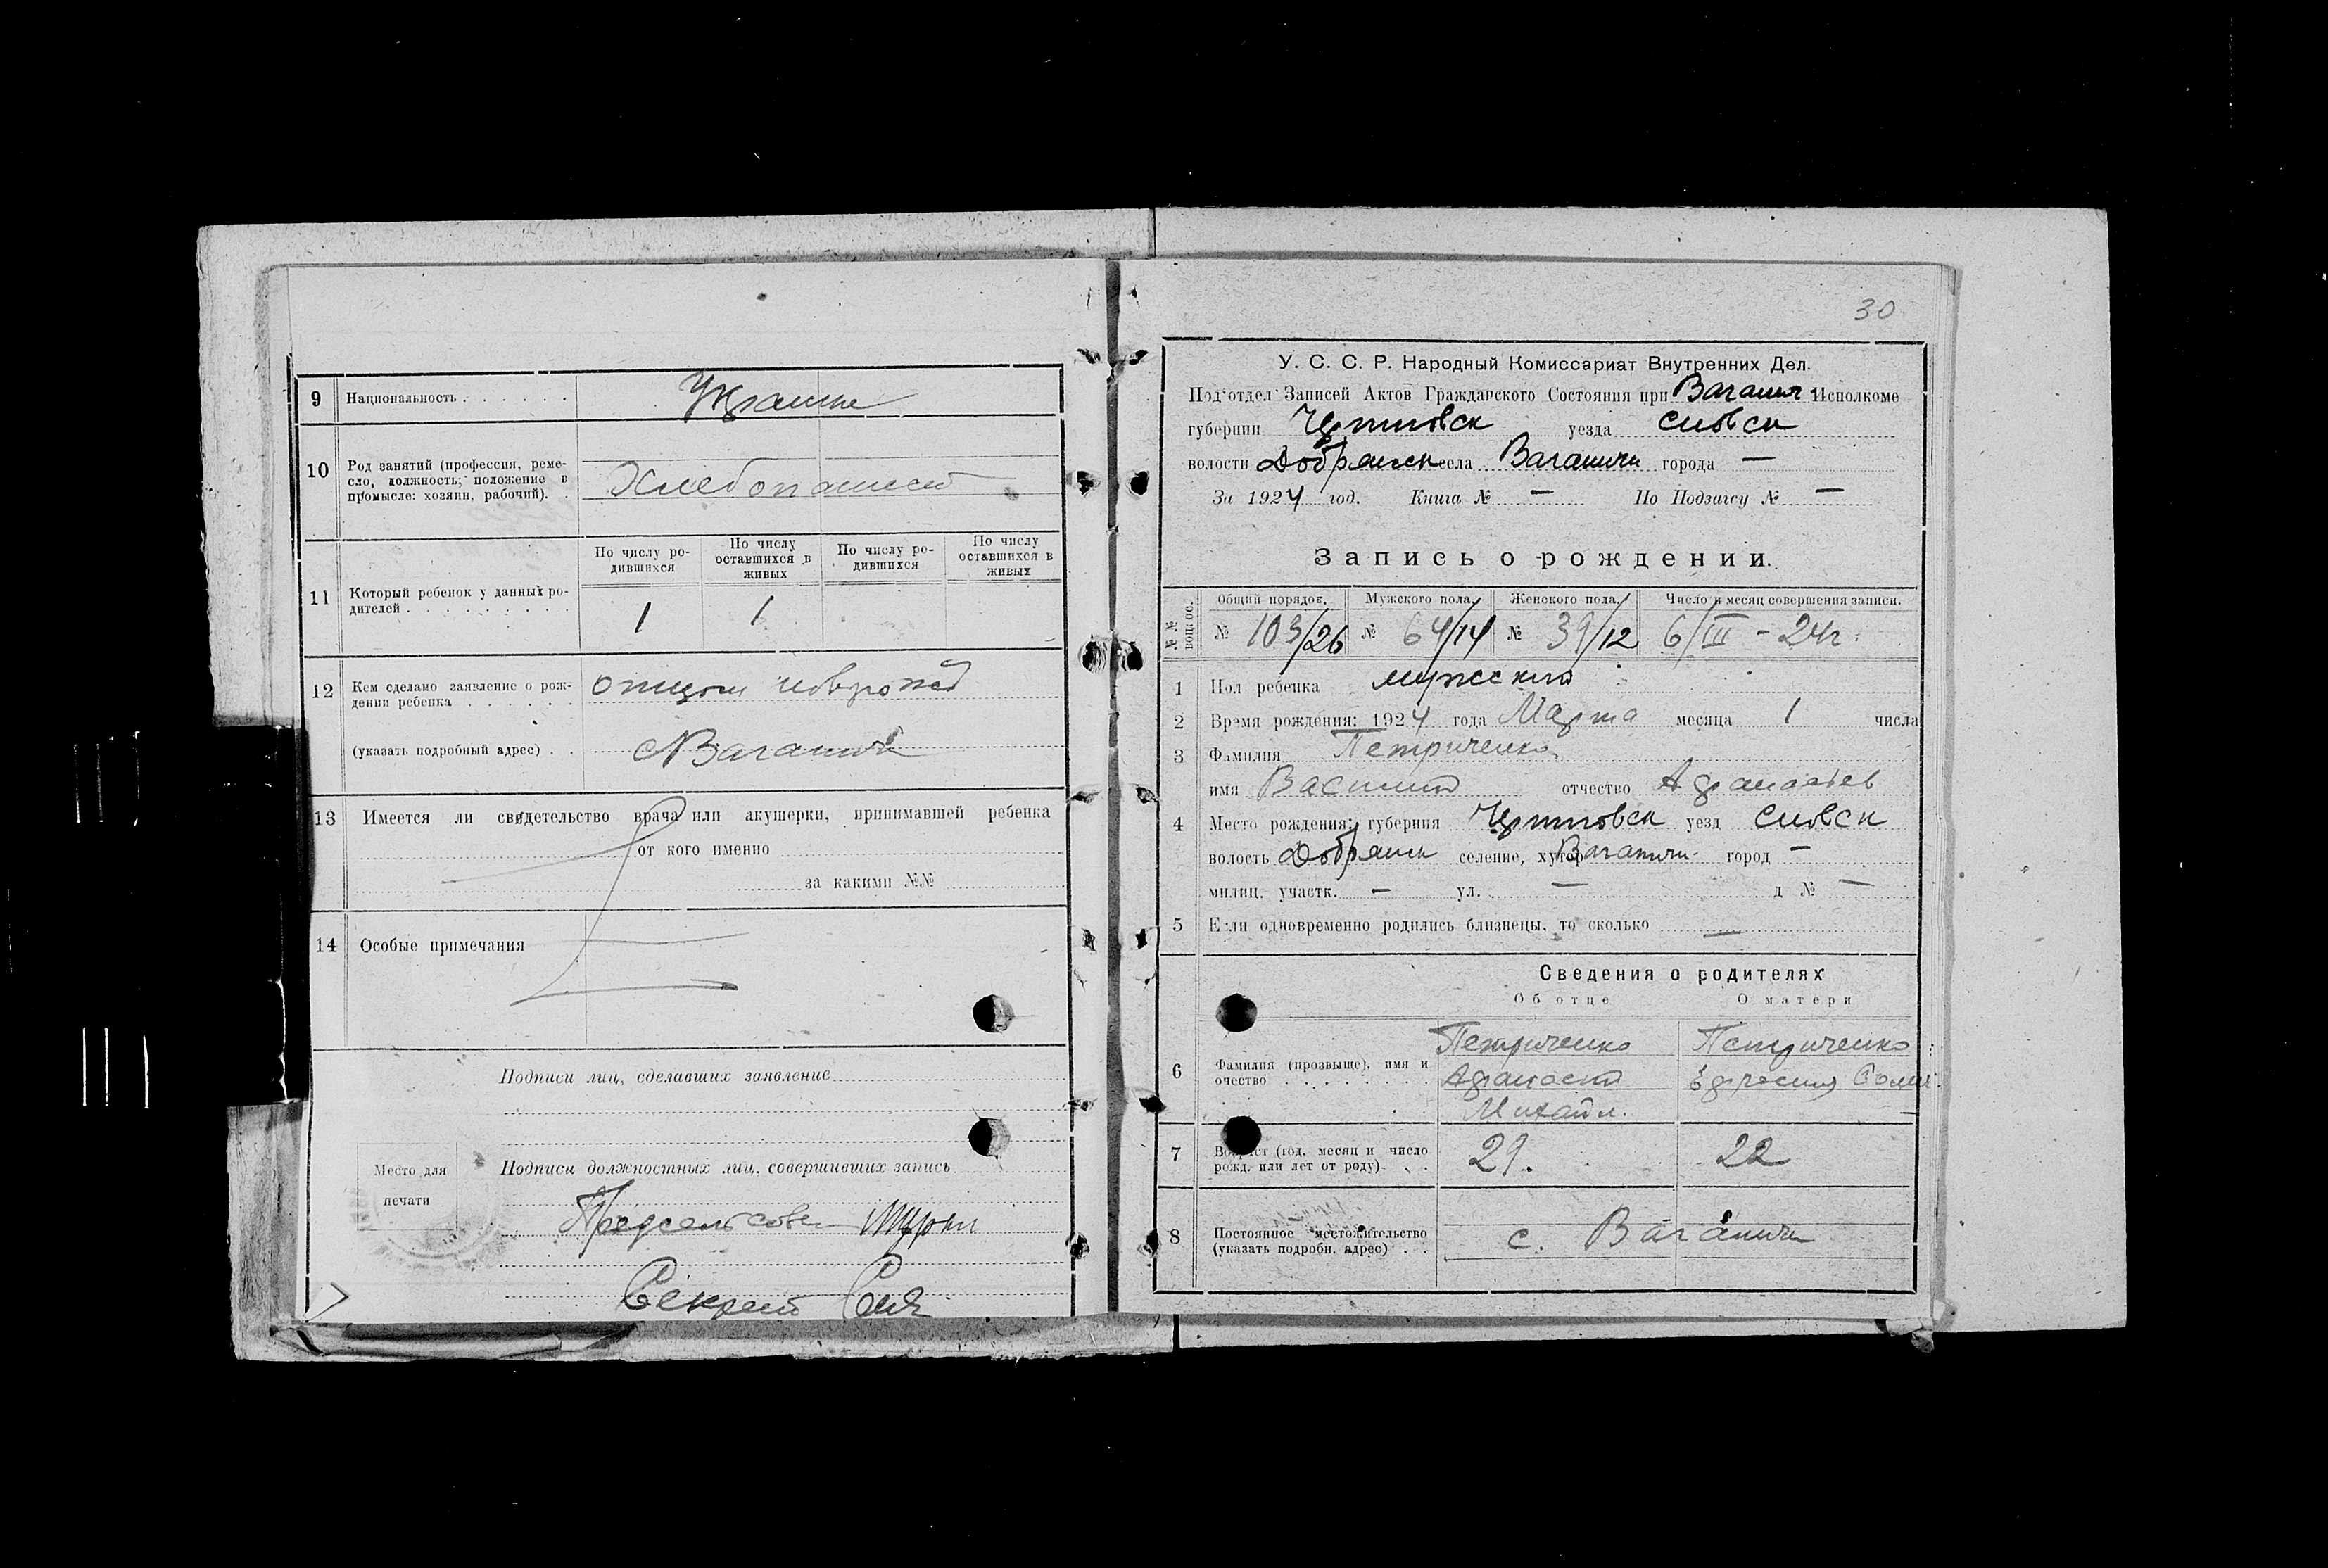 9 Национальность . . . . . . Украине
10 Род занятий (профессия, реме-
сло, должность; положение в
промысле: хозяин, рабочий). .
Хлебопашест
По числу ро-
дившихся
По числу
оставшихся в
живых
По числу ро-
дившихся
По числу
оставшихся в
живых
11 Который ребенок у данных ро-
дителей . . . . . . . . .
1 1
12 Кем сделано заявление о рож-
дении ребенка . . . . . .
отцом новрожд
(указать подробный адрес) . . с Ваганичи
13 Имеется ли свидетельство врача или акушерки, принимавшей ребенка
от кого именно
за какими №№
14 Особые примечания
Подписи лиц, сделавших заявление
Место для
печати
Подписи должностных лиц, совершивших запись
Предсельсове
Секрет
30
У. С. С. Р. Народный Комиссариат Внутренних Дел.
Под'отдел Записей Актов Гражданского Состояния при Ваганич Исполкоме
губернии Чернговск уезда Сновск
волости Добрянск села Ваганичи города —
За 1924 год. Книга № — По Подзагсу № —
Запись о рождении.
Общий порядок. Мужского пола. Женского пола. Число и месяц совершения записи.
№ 103/26 № 64/14 № 39/12 6/III - 24 г.
1 Пол ребенка мужский
2 Время рождения: 1924 года Марта месяца 1 числа
3 Фамилия Петриченко
имя Василий отчество Афанасьев
4 Место рождения: губерния Чернговск уезд Сновск
волость Добрянск селение, хутор Ваганичи город —
милиц. участк. — ул. — д № —
5 Если одновременно родились близнецы, то сколько —
Сведения о родителях
Об отце О матери
6 Фамилия (прозвыще), имя и
очество . . . . . . . .
Петриченко Петриченко
Афанасий
Михайл.
7 Возраст (год, месяц и число
рожд. или лет от роду) . . .
21. 22
8 Постоянное местожительство
(указать подробн. адрес) . .
с. Ваганичи